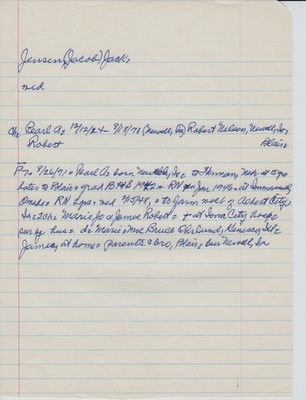 Jensen, (Jacob) Jack
md
Ch: Pearl A= 12/12/24 - 9/18/71 (Newell, Ia) Robert Nelson, Newell, Ia=
Robert Blair=
P-T= 9/26/71= Pearl A= born Newell, Ia= to Herman, Neb= at 3 yo
later to Blair= grad BHS 1942= RN gra Jan 1946= at Immanuel,
Omaha= RN 2 yrs= md 9/15/48, = to farm north of Albert City,
Ia= 2 ch= Marie Jo & James Robert= + at Iowa City hosp=
surv by hus= dr Marie= Mrs Bruce Oklund, Geneseo, Ill=
James, at home= parents & bro, Blair= bur Newell, Ia